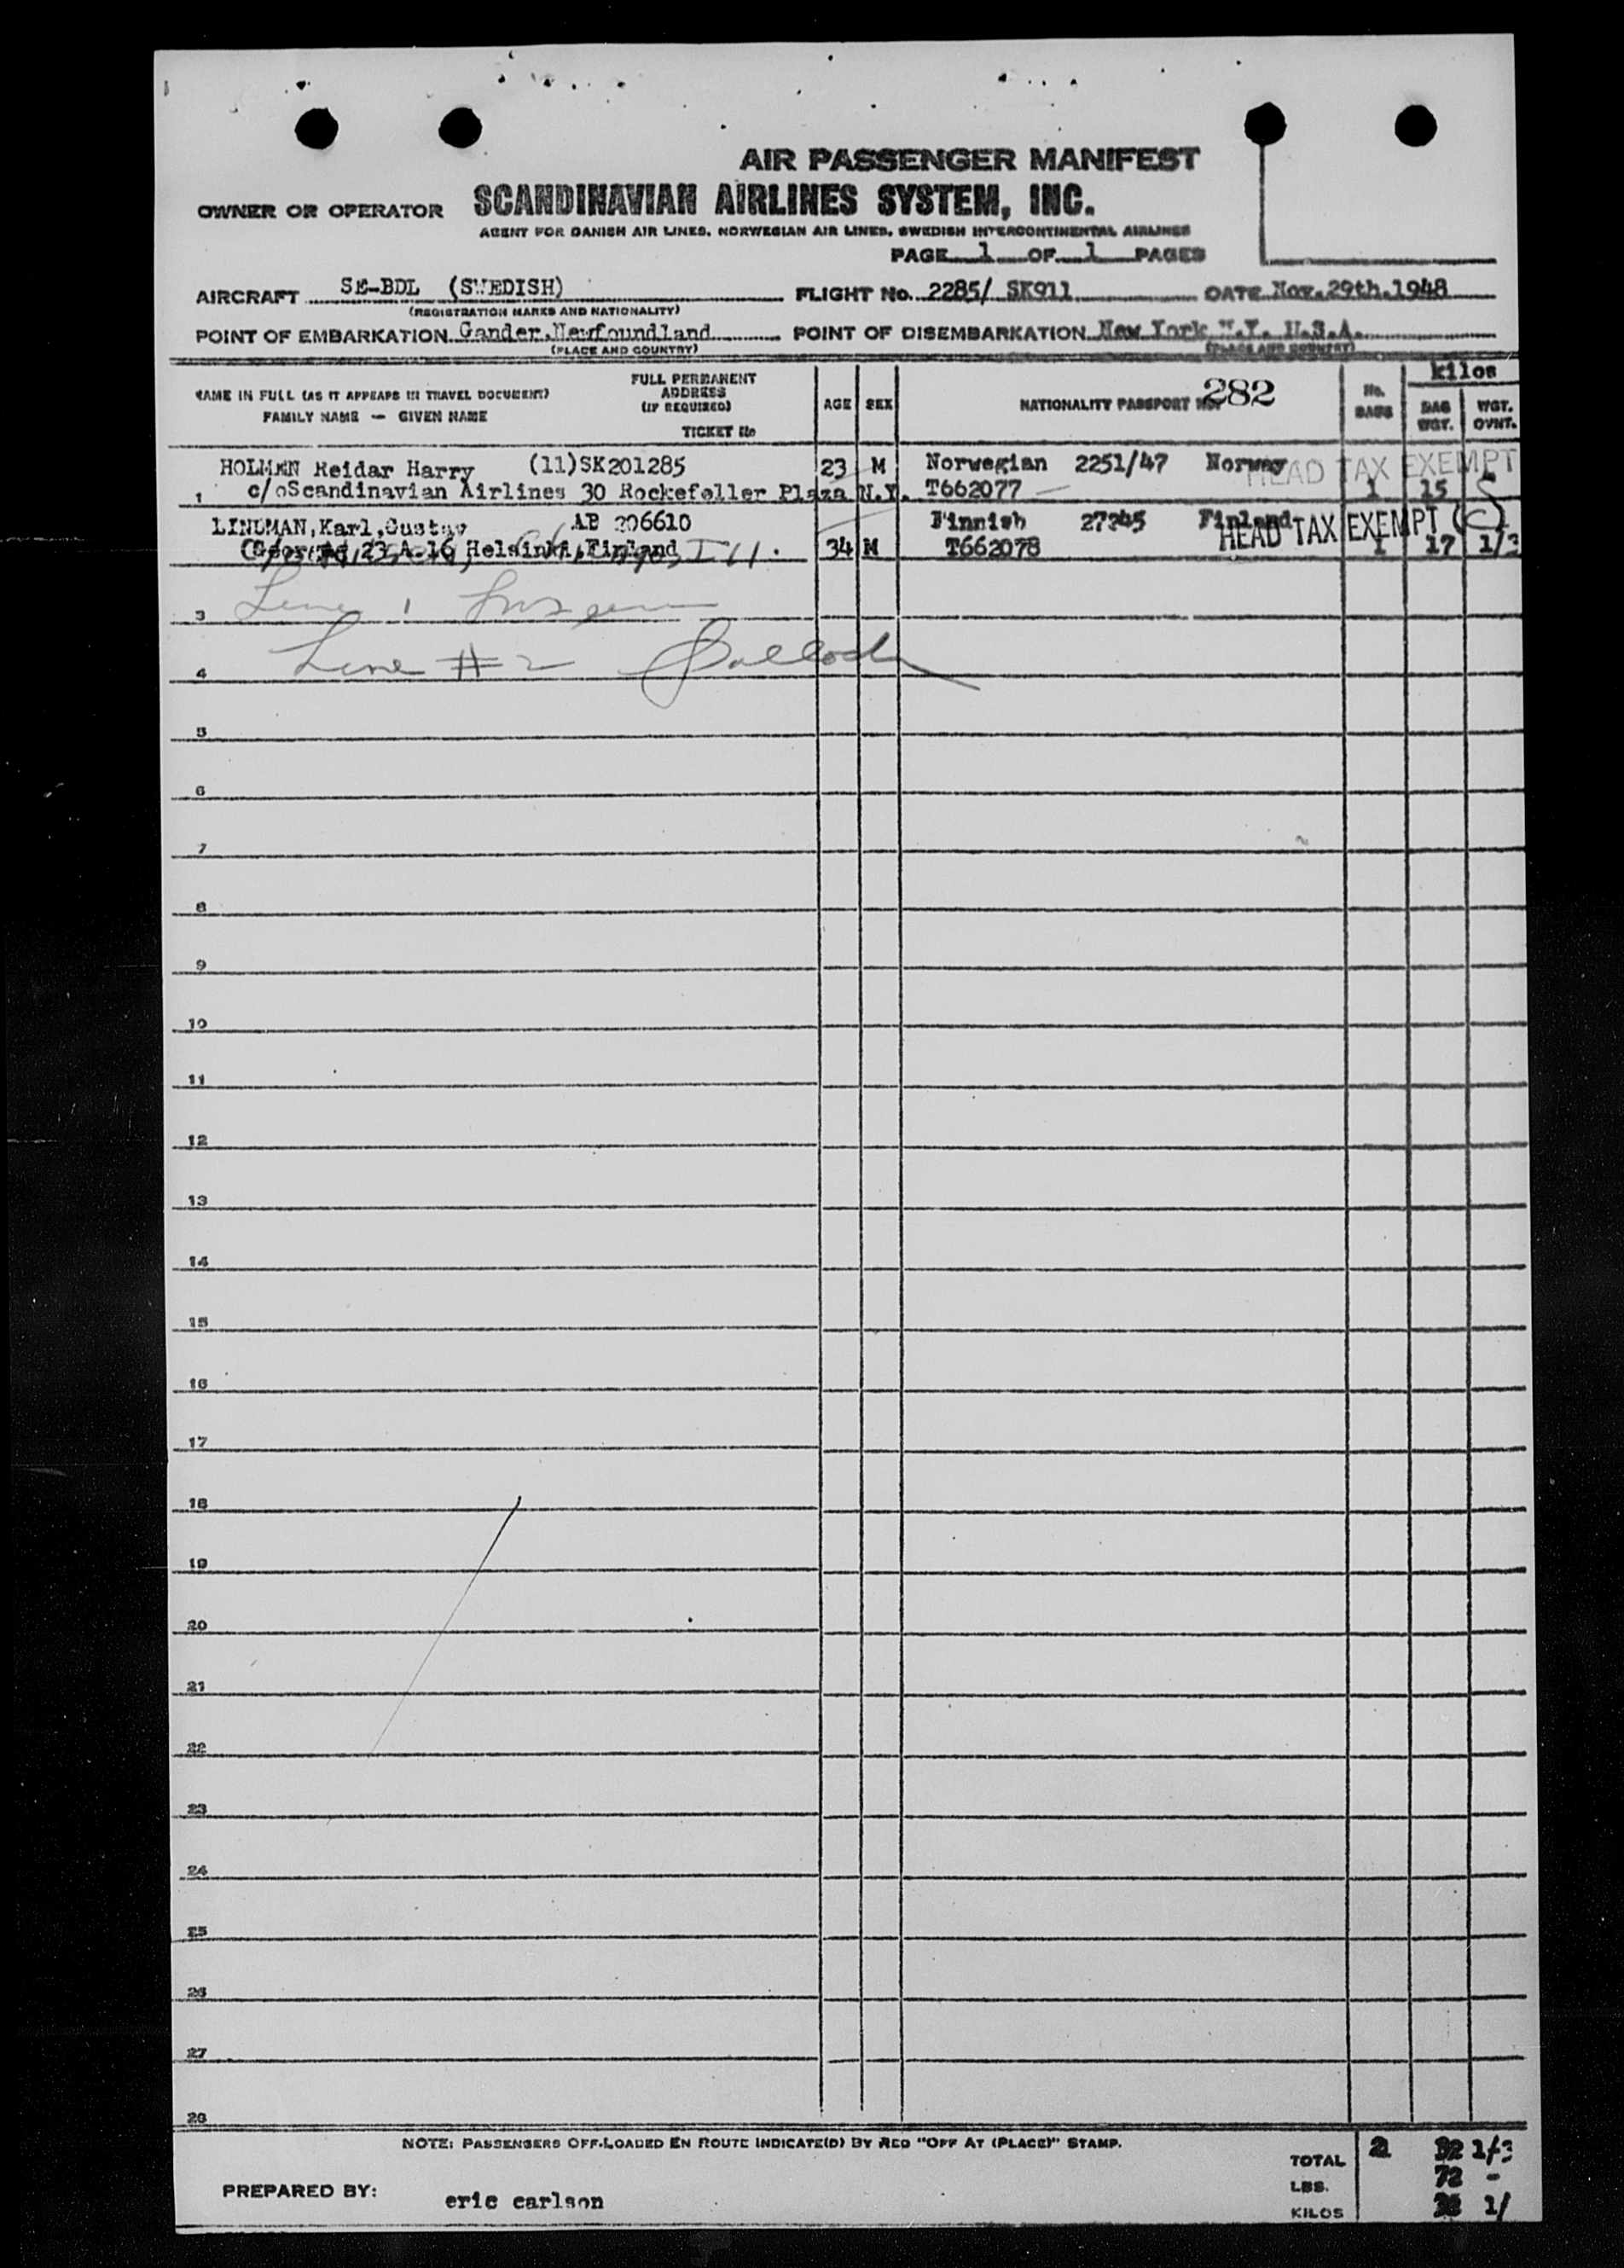 AIR PASSENGER MANIFEST
OWNER OR OPERATOR SCANDINAVIAN AIRLINES SYSTEM, INC.
AGENT FOR DANISH AIR LINES, NORWEGIAN AIR LINES, SWEDISH INTERCONTINENTAL AIRLINES
PAGE 1 OF 1 PAGES
AIRCRAFT SE-BDL (SWEDISH) FLIGHT No. 2285/ SK911 DATE Nov.29th.1948
(REGISTRATION MARKS AND NATIONALITY)
POINT OF EMBARKATION Gander.Newfoundland POINT OF DISEMBARKATION New York N.Y. U.S.A.
(PLACE AND COUNTRY) (PLACE AND COUNTRY)
NAME IN FULL (AS IT APPEARS IN TRAVEL DOCUMENT)
FAMILY NAME — GIVEN NAME
FULL PERMANENT
ADDRESS
(IF REQUIRED)
TICKET No
AGE SEX NATIONALITY PASSPORT No. 282
No.
BAGS
kilos
BAG
WGT.
WGT.
OVWT.
HOLMEN Reidar Harry (11)SK201285 23 M Norwegian 2251/47 Norway HEAD TAX EXEMPT
1 c/oScandinavian Airlines 30 Rockefeller Plaza N.Y. T662077 1 15
LINDMAN,Karl,Gustav AB 206610 Finnish 27245 Finland HEAD TAX EXEMPT (C)
23 A 16 Helsinki,Finland Ill. 34 M T662078 1 17 1/3
3 Line 1
4 Line #2
5
6
7
8
9
10
11
12
13
14
15
16
17
18
19
20
21
22
23
24
25
26
27
28
NOTE: PASSENGERS OFF-LOADED EN ROUTE INDICATE(D) BY RED "OFF AT (PLACE)" STAMP.
TOTAL 2 32 1/3
LBS. 72 -
PREPARED BY: eric carlson
KILOS 32 1/